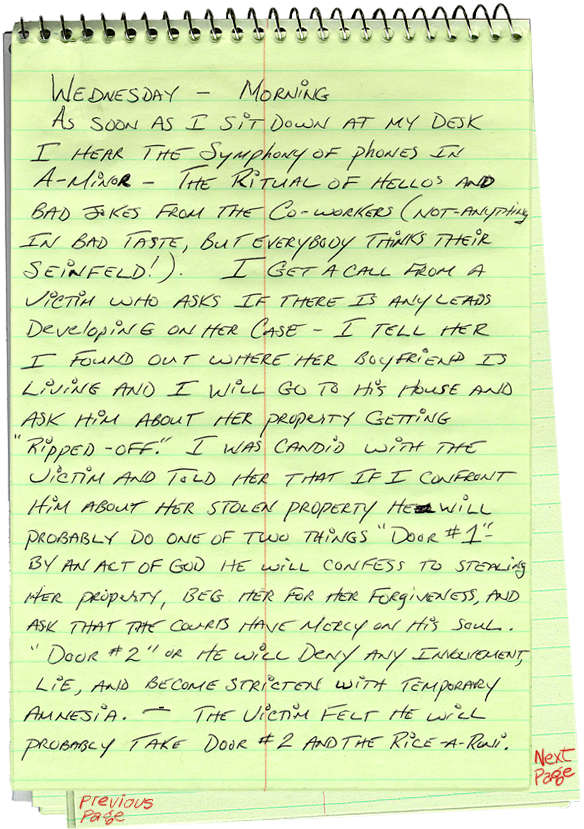 Wednesday - Morning
As soon as I sit down at my desk
I hear the symphony of phones in
A-Minor - The ritual of hellos and
bad jokes from the co-workers (not-anything
in bad taste, but everybody thinks their
Seinfeld!). I get a call from a
victim who asks if there is any leads
developing on her case - I tell her
I found out where her boyfriend is
living and I will go to his house and
ask him about her property getting
"ripped-off." I was candid with the
victim and told her that if I confront
him about her stolen property he will
probably do one of two things "Door #1"-
By an act of God he will confess to stealing
her property, beg her for her forgiveness, and
ask that the courts have mercy on his soul.
"Door #2" or he will deny any involvement,
lie, and become stricten with temporary
amnesia. - The victim felt he will
probably take Door #2 and the Rice-a-Roni.
Next
Page
Previous
Page